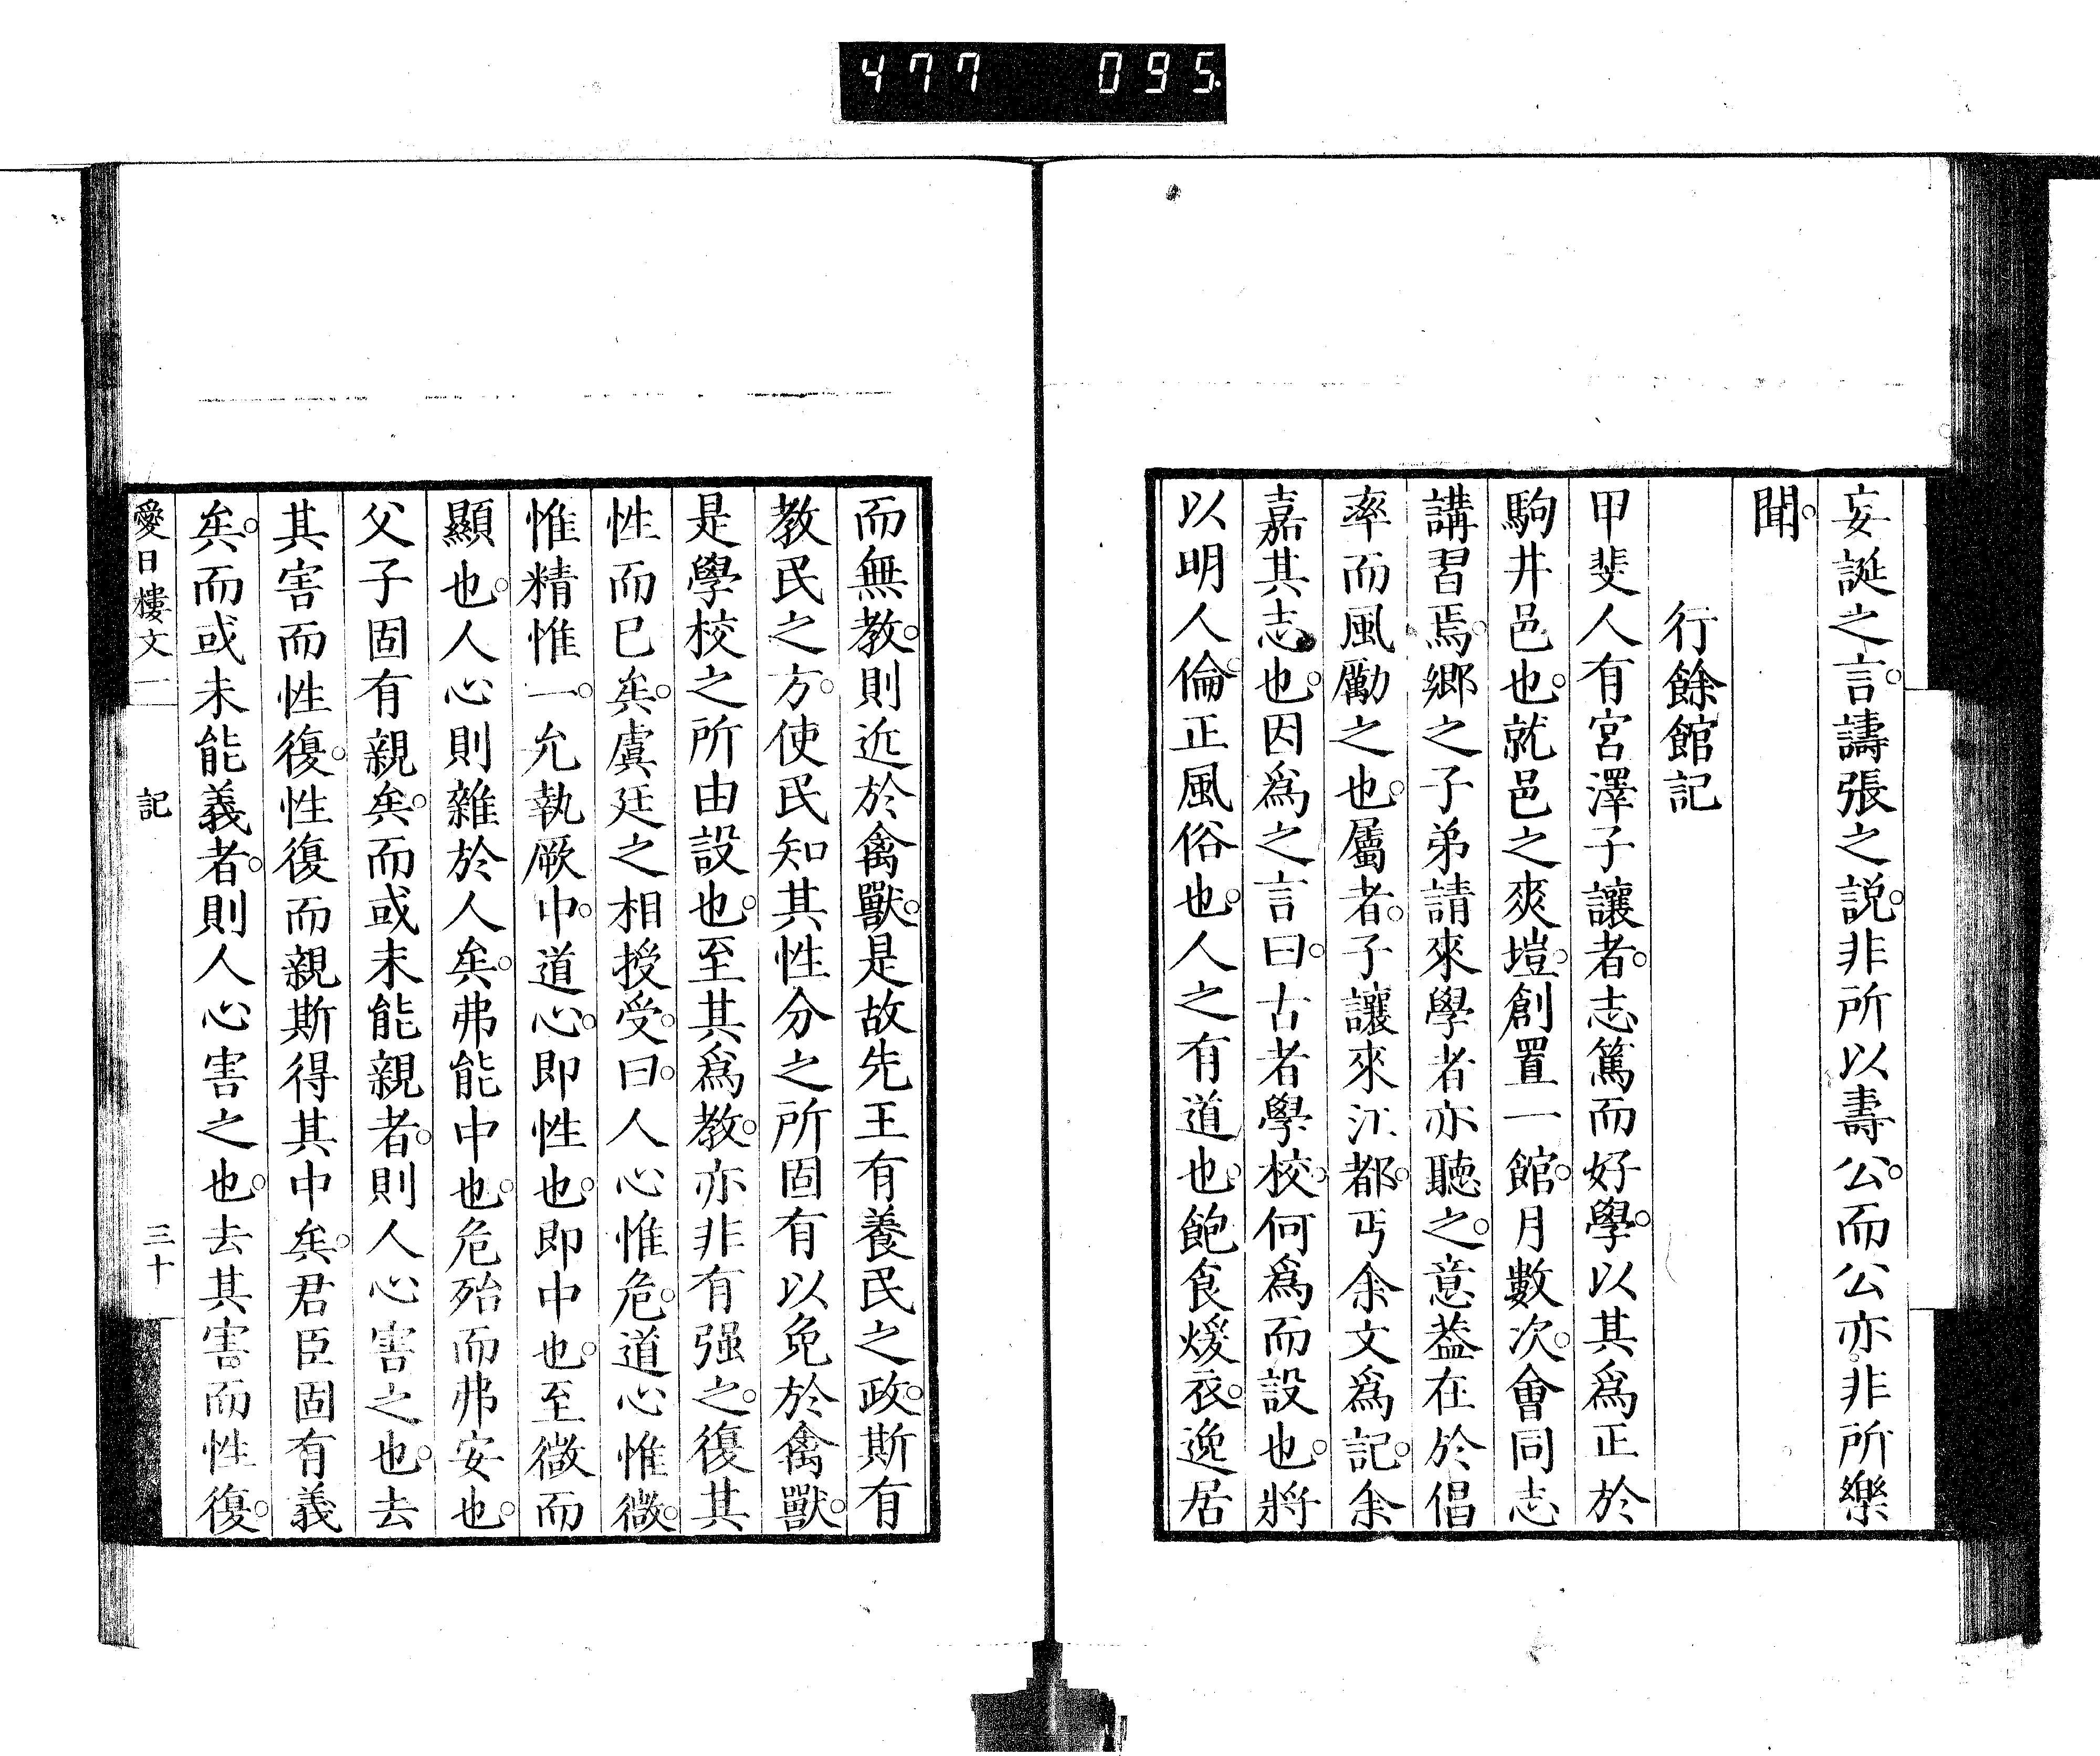 477 095.
妄誕之言。譸張之説。非所以壽公。而公亦非所樂
聞。
行餘館記
甲斐人有宮澤子讓者。志篤而好學。以其爲正於
駒井邑也。就邑之爽塏。創置一館。月數次。會同志
講習焉。鄉之子弟請來學者亦聽之。意蓋在於倡
率而風勵之也。屬者。子讓來江都。丐余文爲記。余
嘉其志也。因爲之言曰。古者學校。何爲而設也。將
以明人倫。正風俗也。人之有道也。飽食煖衣。逸居
而無教。則近於禽獸。是故先王有養民之政。斯有
教民之方。使民知其性分之所固有以免於禽獸。
是學校之所由設也。至其爲教。亦非有强之。復其
性而已矣。虞廷之相授受。曰。人心惟危。道心惟微。
惟精惟一。允執厥中。道心。即性也。即中也。至微而
顯也。人心則雜於人矣。弗能中也。危殆而弗安也。
父子固有親矣。而或未能親者。則人心害之也。去
其害而性復。性復而親斯得其中矣。君臣固有義
矣。而或未能義者。則人心害之也。去其害而性復。
愛日樓文一 記 三十